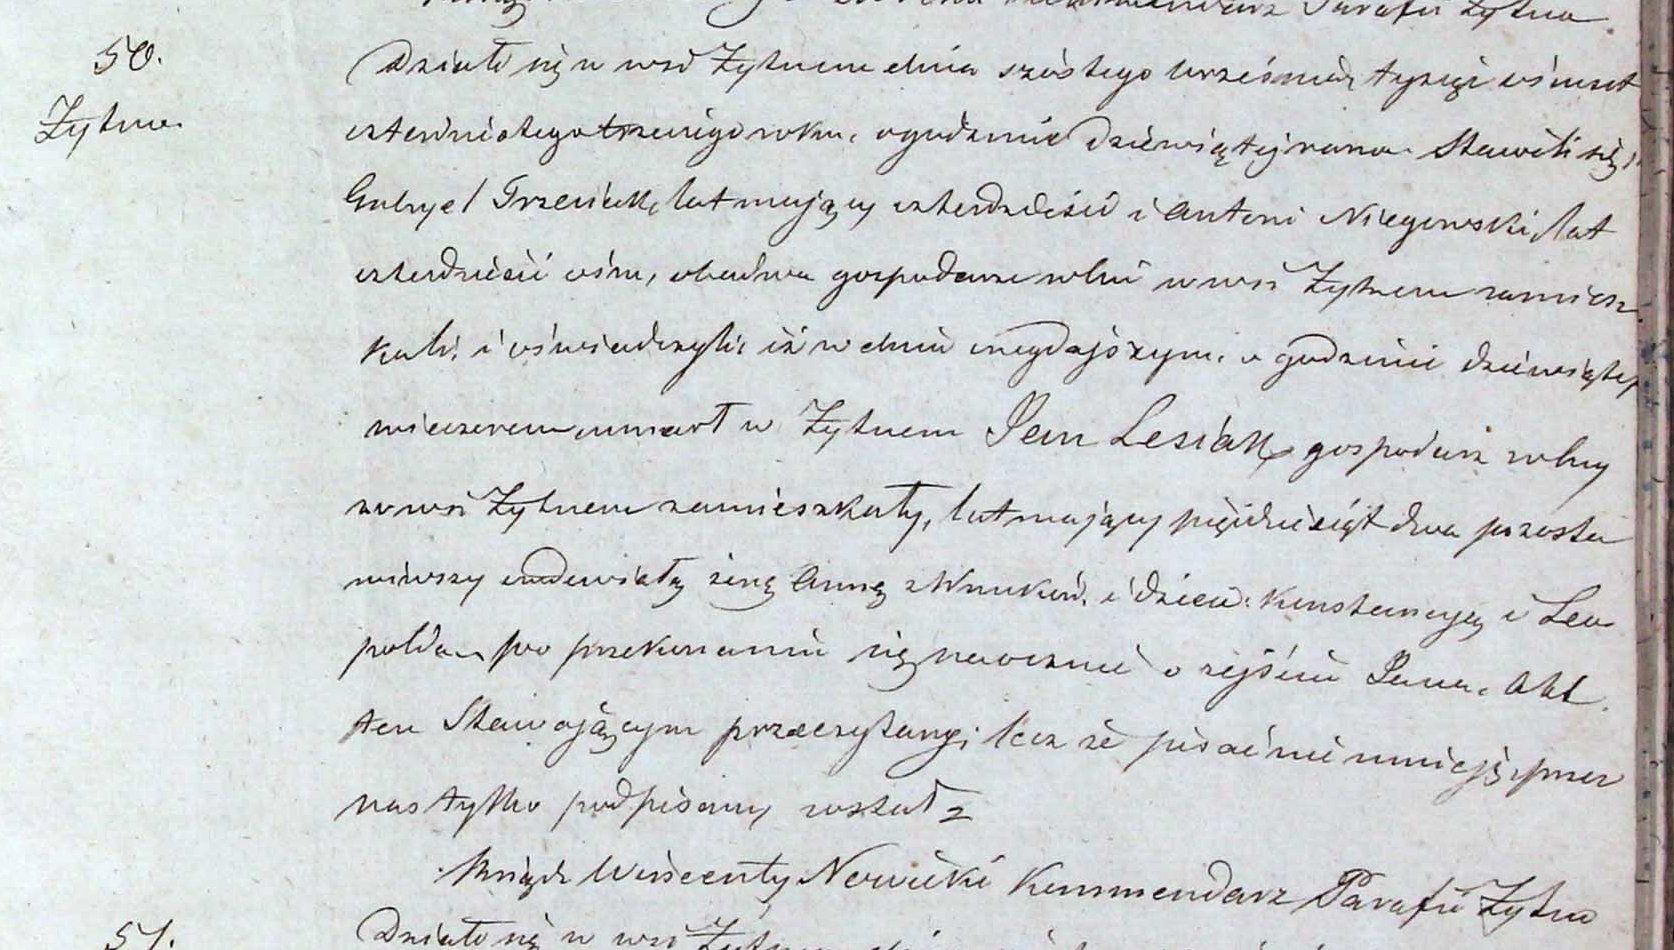 Parafii Żytno
50. Działo się w wsi Żytnem dnia szóstego września tysiąc ośmset
Żytno. czterdziestego trzeciego roku, o godzinie dziewiątej rano. Stawili się,
Gabryel Trzeciak, lat mający czterdzieści i Antoni Niegowski, lat
czterdzieści ośm, obadwa gospodarze rolni w wsi Żytnem zamiesz
kali, i oświadczyli, iż w dniu onegdajszym, o godzinie dziewiątej
wieczorem umarł w Żytnem Jan Lesiak, gospodarz rolny
w wsi Żytnem zamieszkały, lat mający pięćdziesiąt dwa pozosta
wiwszy owdowiałą żonę Annę z Wnuków, i dzieci: Konstancyą i Leo
polda po przekonaniu się naocznie o zejściu Jana. Akt
ten Stawającym przeczytany; lecz że pisać nie umieją, przez
nas tylko podpisany został
Ksiądz Wincenty Nowicki Kommendarz Parafii Żytno
51. Działo się w wsi Żytnem